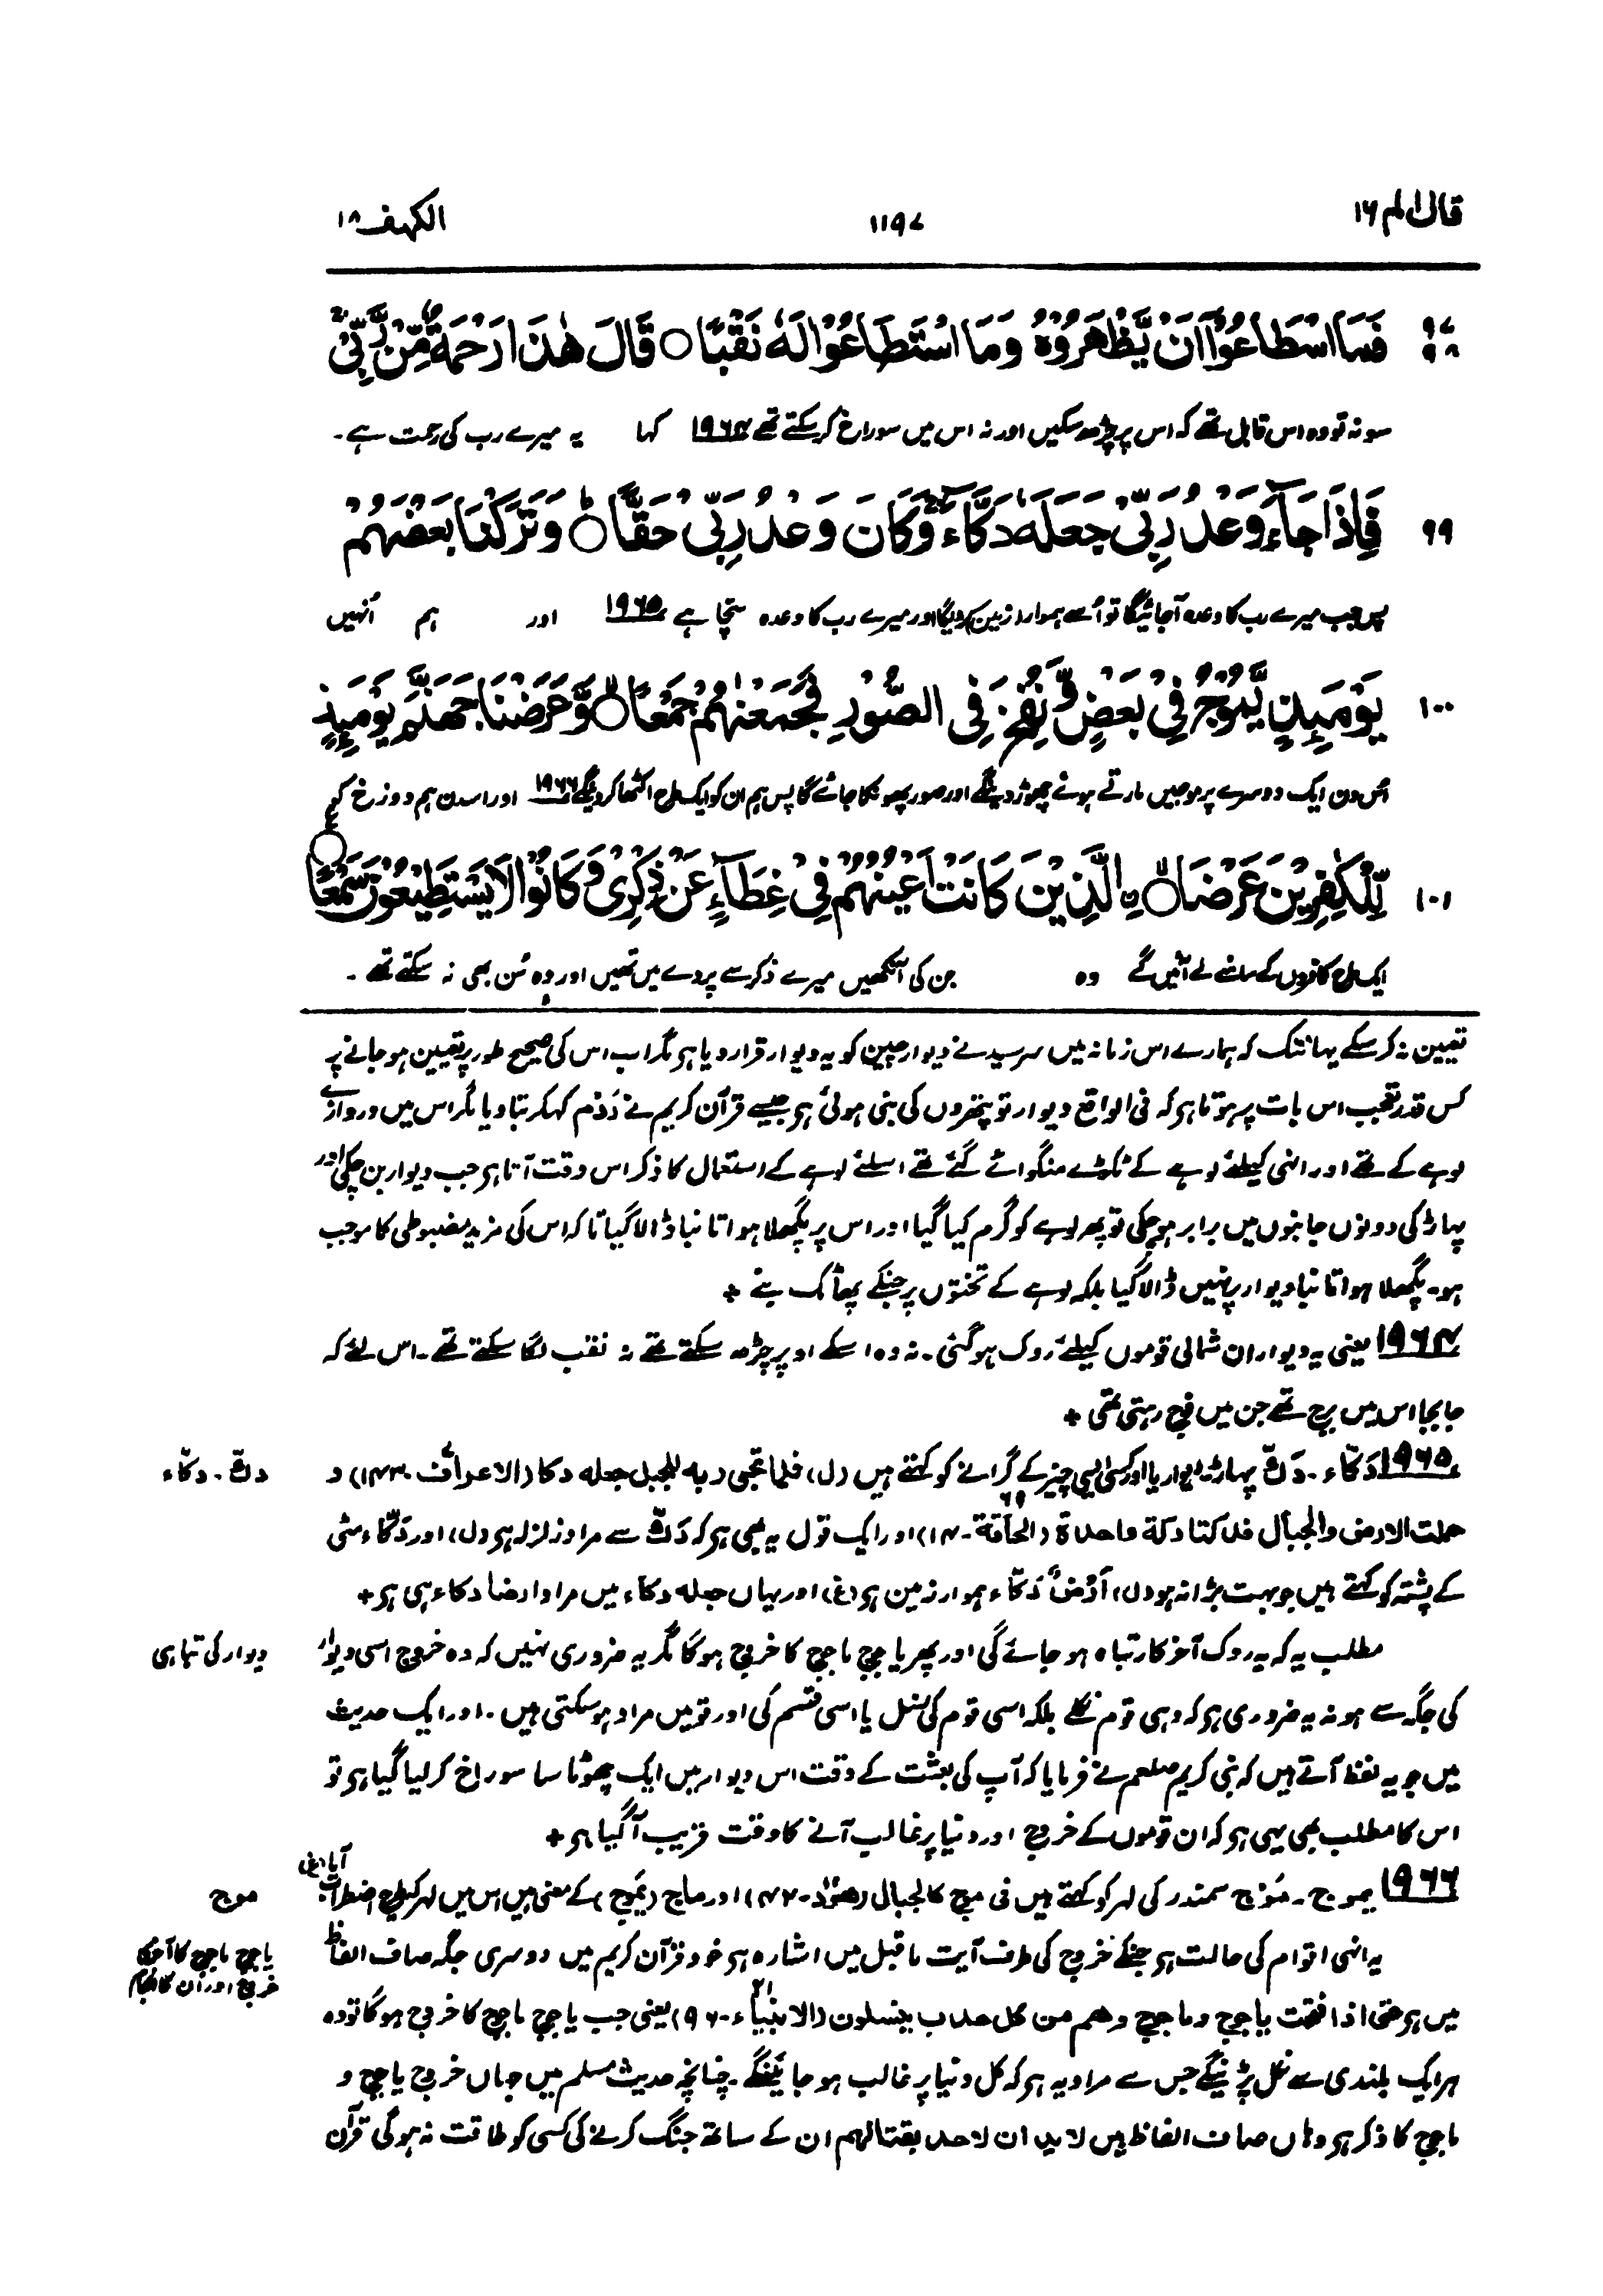 قال الم ۱۶ ۱۱۹۷ الکہف ۱۸
۹۷ ۹۸ فَمَا اسْطَاعُوْٓا اَنْ يَّظْهَرُوْهُ وَمَا اسْتَطَاعُوْا لَهٗ نَقْبًا ○ قَالَ هٰذَا رَحْمَةٌ مِّنْ رَّبِّيْ ۚ
سو نہ تو وہ اس قابل تھے کہ اس پر چڑھ سکیں اور نہ اس میں سوراخ کر سکتے تھے ۱۹۶۴ کہا یہ میرے رب کی رحمت ہے ۔
۹۹ فَاِذَا جَآءَ وَعْدُ رَبِّيْ جَعَلَهٗ دَكَّآءَ ۚ وَكَانَ وَعْدُ رَبِّيْ حَقًّا ○ وَتَرَكْنَا بَعْضَهُمْ
پس جب میرے رب کا وعدہ آجائیگا تو اُسے ہموار (زمین) کر دیگا اور میرے رب کا وعدہ سچّا ہے ۱۹۶۵ اور ہم اُنہیں
۱۰۰ يَوْمَىِٕذٍ يَّمُوْجُ فِيْ بَعْضٍ وَّنُفِخَ فِى الصُّوْرِ فَجَمَعْنٰهُمْ جَمْعًا ○ وَّعَرَضْنَا جَهَنَّمَ يَوْمَىِٕذٍ
اُس دن ایک دوسرے پر موجیں مارتے ہوئے چھوڑ دینگے اور صور پھونکا جائے گا پس ہم ان کو ایک طرح اکٹھا کر دینگے ۱۹۶۶ اور اسدن ہم دوزخ کو
۱۰۱ لِّلْكٰفِرِيْنَ عَرْضَا ○ ِۨالَّذِيْنَ كَانَتْ اَعْيُنُهُمْ فِيْ غِطَآءٍ عَنْ ذِكْرِيْ وَكَانُوْا لَا يَسْتَطِيْعُوْنَ سَمْعًا ○ ع
ایک طرح کافروں کے سامنے لے آئیں گے وہ جن کی آنکھیں میرے ذکر سے پردے میں تھیں اور وہ سُن بھی نہ سکتے تھے ۔
تعیین نہ کر سکے یہانتک کہ ہمارے اس زمانہ میں سرسید نے دیوار چین کو یہ دیوار قرار دیا ہر مگر اب اس کی صحیح طور پر تعیین ہو جانے پر
کس قدر تعجب اس بات پر ہوتا ہر کہ فی الواقع دیوار تو پتھروں کی بنی ہوئی ہر جیسے قرآن کریم نے رَدْم کہکر بتا دیا مگر اس میں دروازے
لوہے کے تھے اور انہی کیلئے لوہے کے ٹکڑے منگوائے گئے تھے اسلئے لوہے کے استعمال کا ذکر اس وقت آتا ہر جب دیوار بن چکی اور
پہاڑ کی دونوں جانبوں میں برابر ہو چکی تو پھر لوہے کو گرم کیا گیا اور اس پر پگھلا ہوا تانبا ڈالا گیا تاکہ اس کی مزید مضبوطی کا موجب
ہو۔ پگھلا ہوا تانبا دیوار پر نہیں ڈالا گیا بلکہ لوہے کے تختوں پر جنکے پھاٹک بنے +
۱۹۶۴ یعنی یہ دیوار ان شمالی قوموں کیلئے روک ہو گئی ۔ نہ وہ اسکے اوپر چڑھ سکتے تھے نہ نقب لگا سکتے تھے ۔ اس لئے کہ
جا بجا اس میں برج تھے جن میں فوج رہتی تھی +
۱۹۶۵ دَکّاء ۔ دَكّ پہاڑ دیوار یا اور کسی ایسی چیز کے گرانے کو کہتے ہیں (ل) فلما تجلى ربه للجبل جعله دكا (الاعراف۔۱۴۳) و
دكّ ۔ دکّاء
حملت الارض والجبال فدكتا دكة واحدة (الحاقة ۶۹۔۱۴) اور ایک قول یہ بھی ہر کہ دَكّ سے مراد زلزلہ ہر (ل) اور دَکّاء مٹی
کے پشتہ کو کہتے ہیں جو بہت بڑا نہ ہو (ل) اَرْضٌ دَكّاء ہموار زمین ہر (غ) اور یہاں جعله دكاء میں مراد ارضا دكاء ہی ہر +
مطلب یہ کہ یہ روک آخر کار تباہ ہو جائے گی اور پھر یاجوج ماجوج کا خروج ہوگا مگر یہ ضروری نہیں کہ وہ خروج اسی دیوار
دیوار کی تباہی
کی جگہ سے ہو نہ یہ ضروری ہر کہ وہی قوم نکلے بلکہ اسی قوم کی نسل یا اسی قسم کی اور قومیں مراد ہو سکتی ہیں ۔ اور ایک حدیث
میں جو یہ لفظ آتے ہیں کہ نبی کریم صلعم نے فرمایا کہ آپ کی بعثت کے وقت اس دیوار میں ایک چھوٹا سا سوراخ کر لیا گیا ہر تو
اس کا مطلب بھی یہی ہر کہ ان قوموں کے خروج اور دنیا پر غالب آنے کا وقت قریب آگیا ہر +
۱۹۶۶ یموج ۔ مَوْج سمندر کی لہر کو کہتے ہیں فی موج کالجبال (ھود۔۴۲) اور ماج (یموج) کے معنی ہیں اس میں لہر کیطرح اضطراب آیا (غ)
موج
یہ انہی اقوام کی حالت ہر جنکے خروج کی طرف آیت ماقبل میں اشارہ ہر خود قرآن کریم میں دوسری جگہ صاف الفاظ
یاجوج ماجوج کا آخری
خروج اور ان کا انجام
میں ہر حتى اذا فتحت ياجوج وماجوج وهم من كل حدب ينسلون (الانبیاء ۲۱۔۹۶) یعنی جب یاجوج ماجوج کا خروج ہوگا تو وہ
ہر ایک بلندی سے نکل پڑینگے جس سے مراد یہ ہر کہ کل دنیا پر غالب ہو جائینگے ۔ چنانچہ حدیث مسلم میں جہاں خروج یاجوج و
ماجوج کا ذکر ہر وہاں صاف الفاظ ہیں لا یدان لاحد بقتالهم ان کے ساتھ جنگ کرنے کی کسی کو طاقت نہ ہوگی قرآن